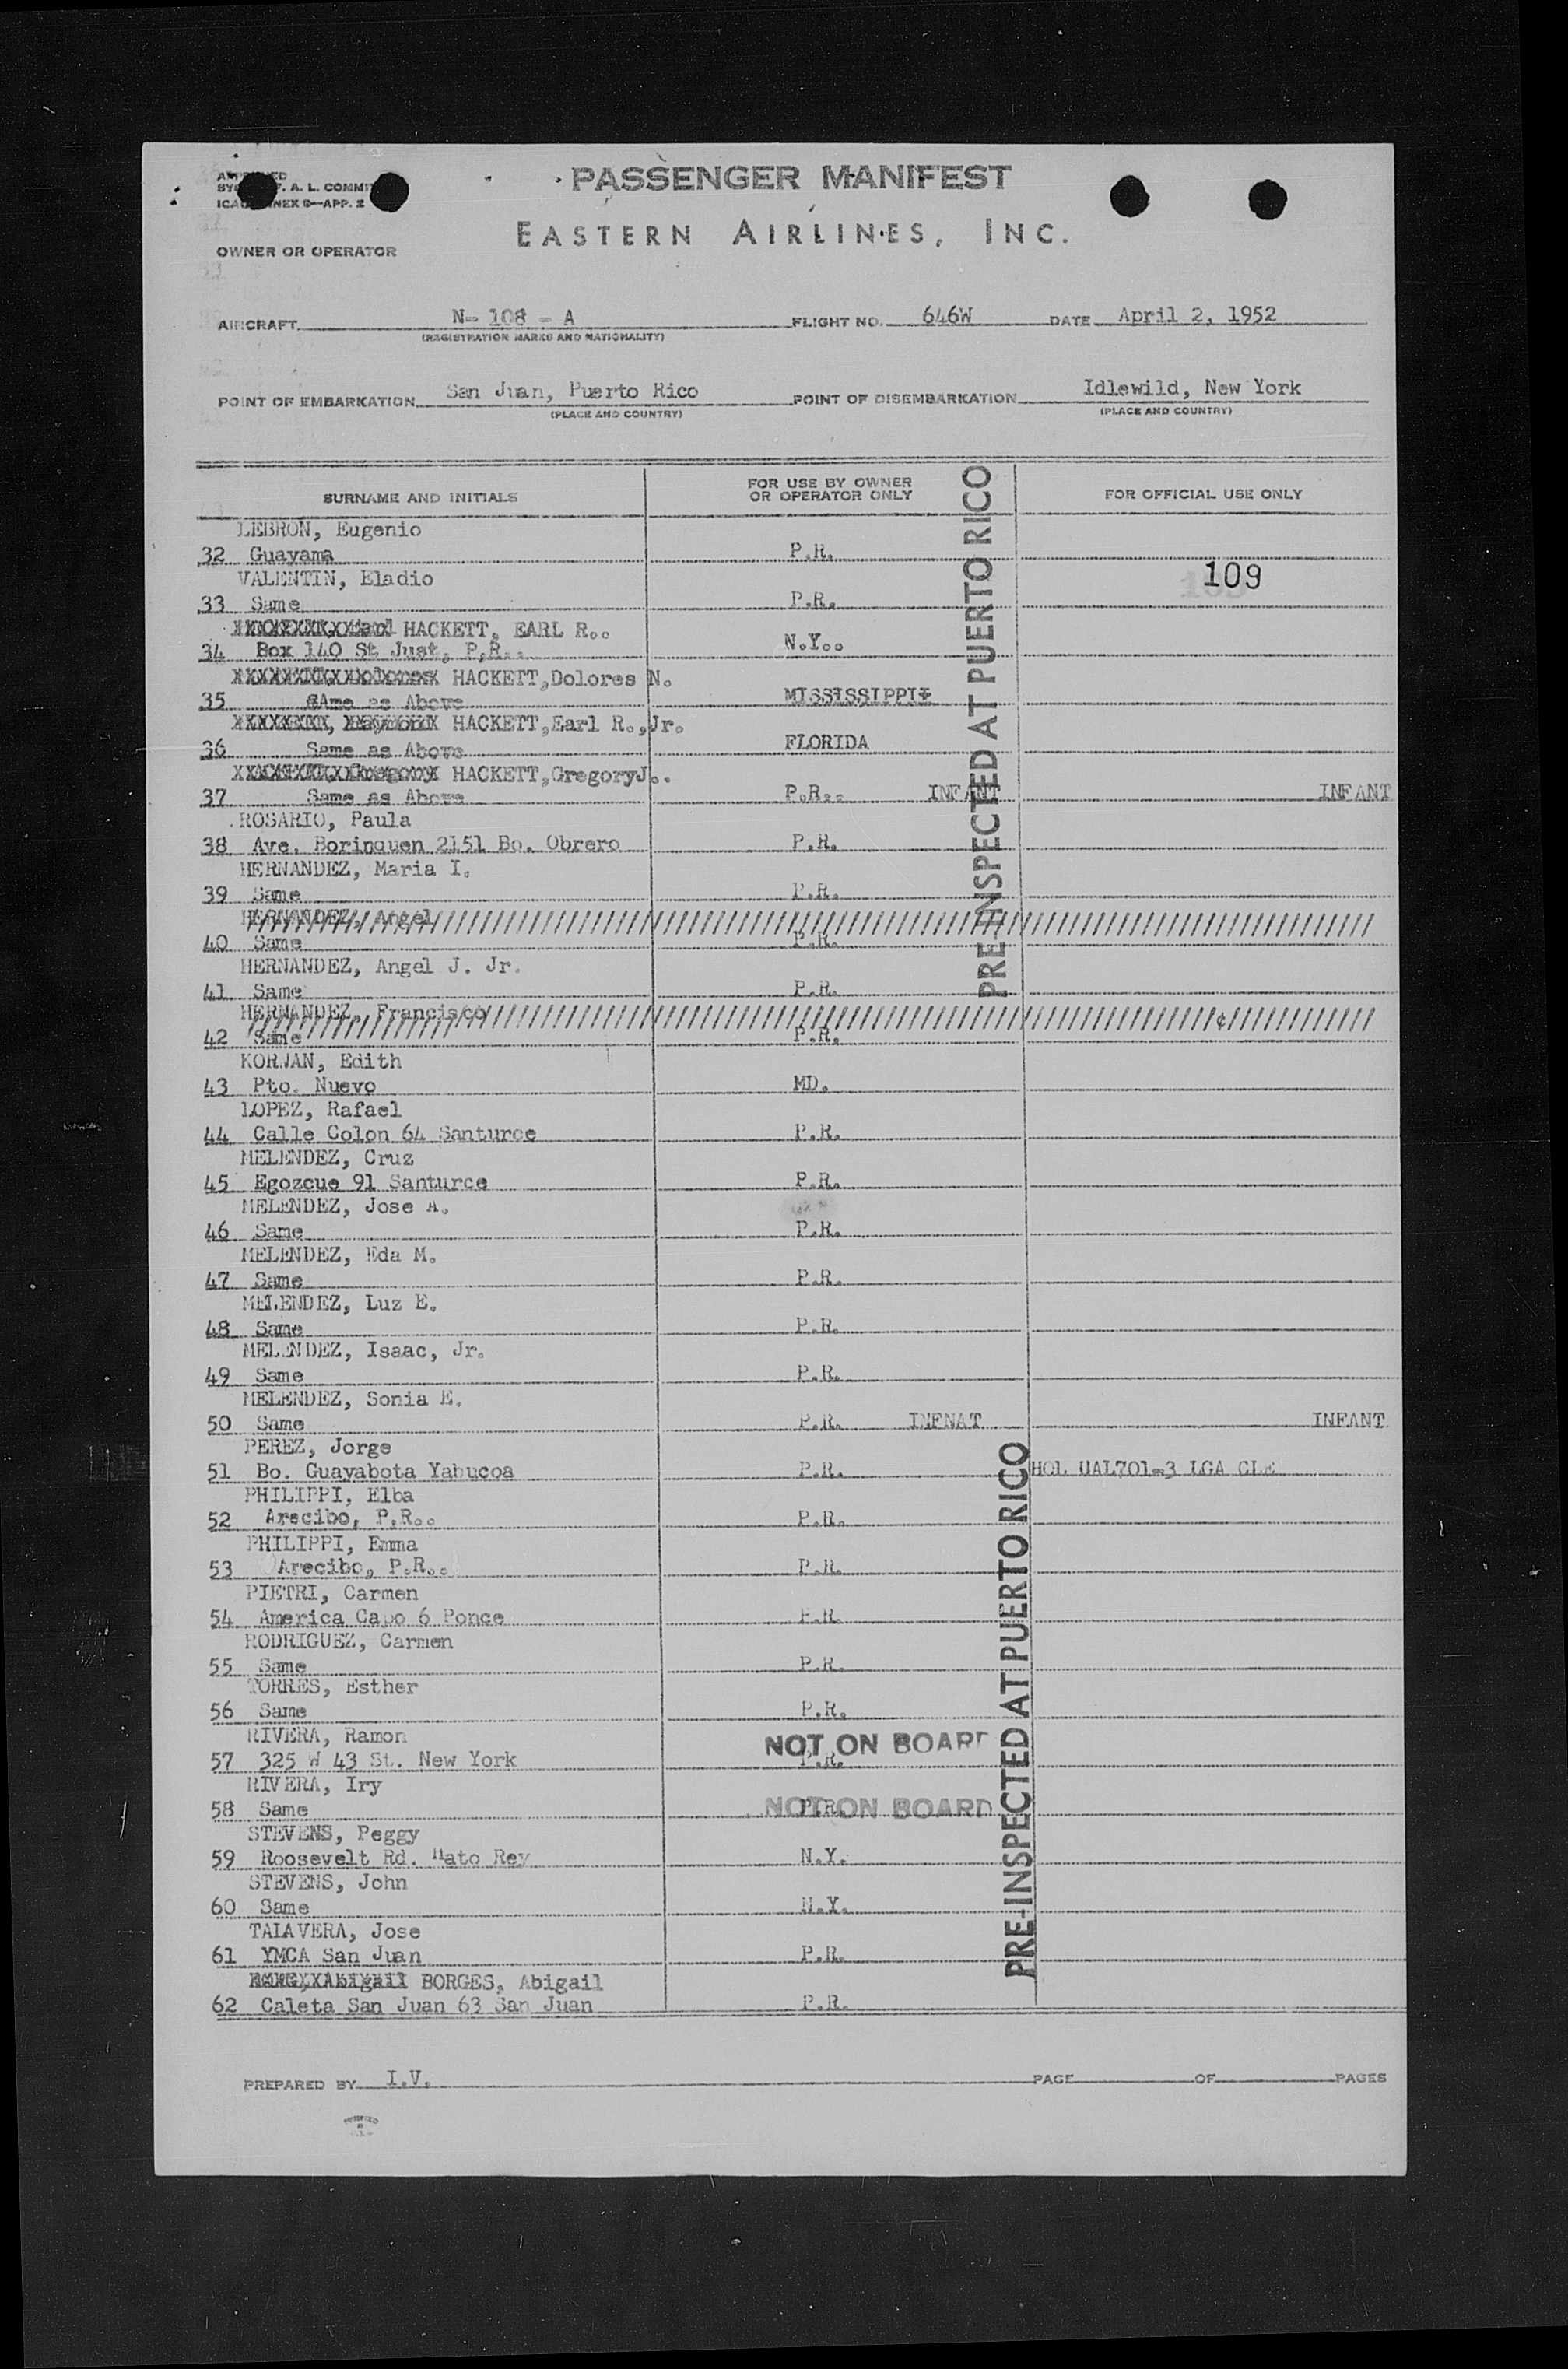 PASSENGER MANIFEST
EASTERN AIRLINES, INC.
OWNER OR OPERATOR
AIRCRAFT N- 108 - A FLIGHT NO. 646W DATE April 2, 1952
(REGISTRATION MARKS AND NATIONALITY)
POINT OF EMBARKATION San Juan, Puerto Rico POINT OF DISEMBARKATION Idlewild, New York
(PLACE AND COUNTRY) (PLACE AND COUNTRY)
SURNAME AND INITIALS FOR USE BY OWNER OR OPERATOR ONLY FOR OFFICIAL USE ONLY
PRE-INSPECTED AT PUERTO RICO
LEBRON, Eugenio
32 Guayama P.R.
109
VALENTIN, Eladio
33 Same P.R.
HACKETT, EARL R..
34 Box 140 St Just, P,R.. N.Y..
HACKETT,Dolores N.
35 SAme as Above MISSISSIPPI
HACKETT,Earl R.,Jr.
36 Same as Above FLORIDA
HACKETT,GregoryJ..
37 Same as Above P.R.. INFANT INFANT
ROSARIO, Paula
38 Ave. Borinquen 2151 Bo. Obrero P.R.
HERNANDEZ, Maria I.
39 Same P.R.
HERNANDEZ, Angel
40 Same P.R.
HERNANDEZ, Angel J. Jr.
41 Same P.R.
HERNANDEZ, Francisco
42 Same P.R.
KORJAN, Edith
43 Pto. Nuevo MD.
LOPEZ, Rafael
44 Calle Colon 64 Santurce P.R.
MELENDEZ, Cruz
45 Egozcue 91 Santurce P.R.
MELENDEZ, Jose A.
46 Same P.R.
MELENDEZ, Eda M.
47 Same P.R.
MELENDEZ, Luz E.
48 Same P.R.
MELENDEZ, Isaac, Jr.
49 Same P.R.
MELENDEZ, Sonia E.
50 Same P.R. INFNAT INFANT
PEREZ, Jorge
51 Bo. Guayabota Yabucoa P.R. HOL UAL701-3 LGA CLE
PRE-INSPECTED AT PUERTO RICO
PHILIPPI, Elba
52 Arecibo, P.R.. P.R.
PHILIPPI, Emma
53 Arecibo, P.R.. P.R.
PIETRI, Carmen
54 America Capo 6 Ponce P.R.
RODRIGUEZ, Carmen
55 Same P.R.
TORRES, Esther
56 Same P.R.
RIVERA, Ramon NOT ON BOARD
57 325 W 43 St. New York P.R.
RIVERA, Iry
58 Same P.R. NOT ON BOARD
STEVENS, Peggy
59 Roosevelt Rd. Hato Rey N.Y.
STEVENS, John
60 Same N.Y.
TALAVERA, Jose
61 YMCA San Juan P.R.
BORGES, Abigail
62 Caleta San Juan 63 San Juan P.R.
PREPARED BY I.V. PAGE OF PAGES